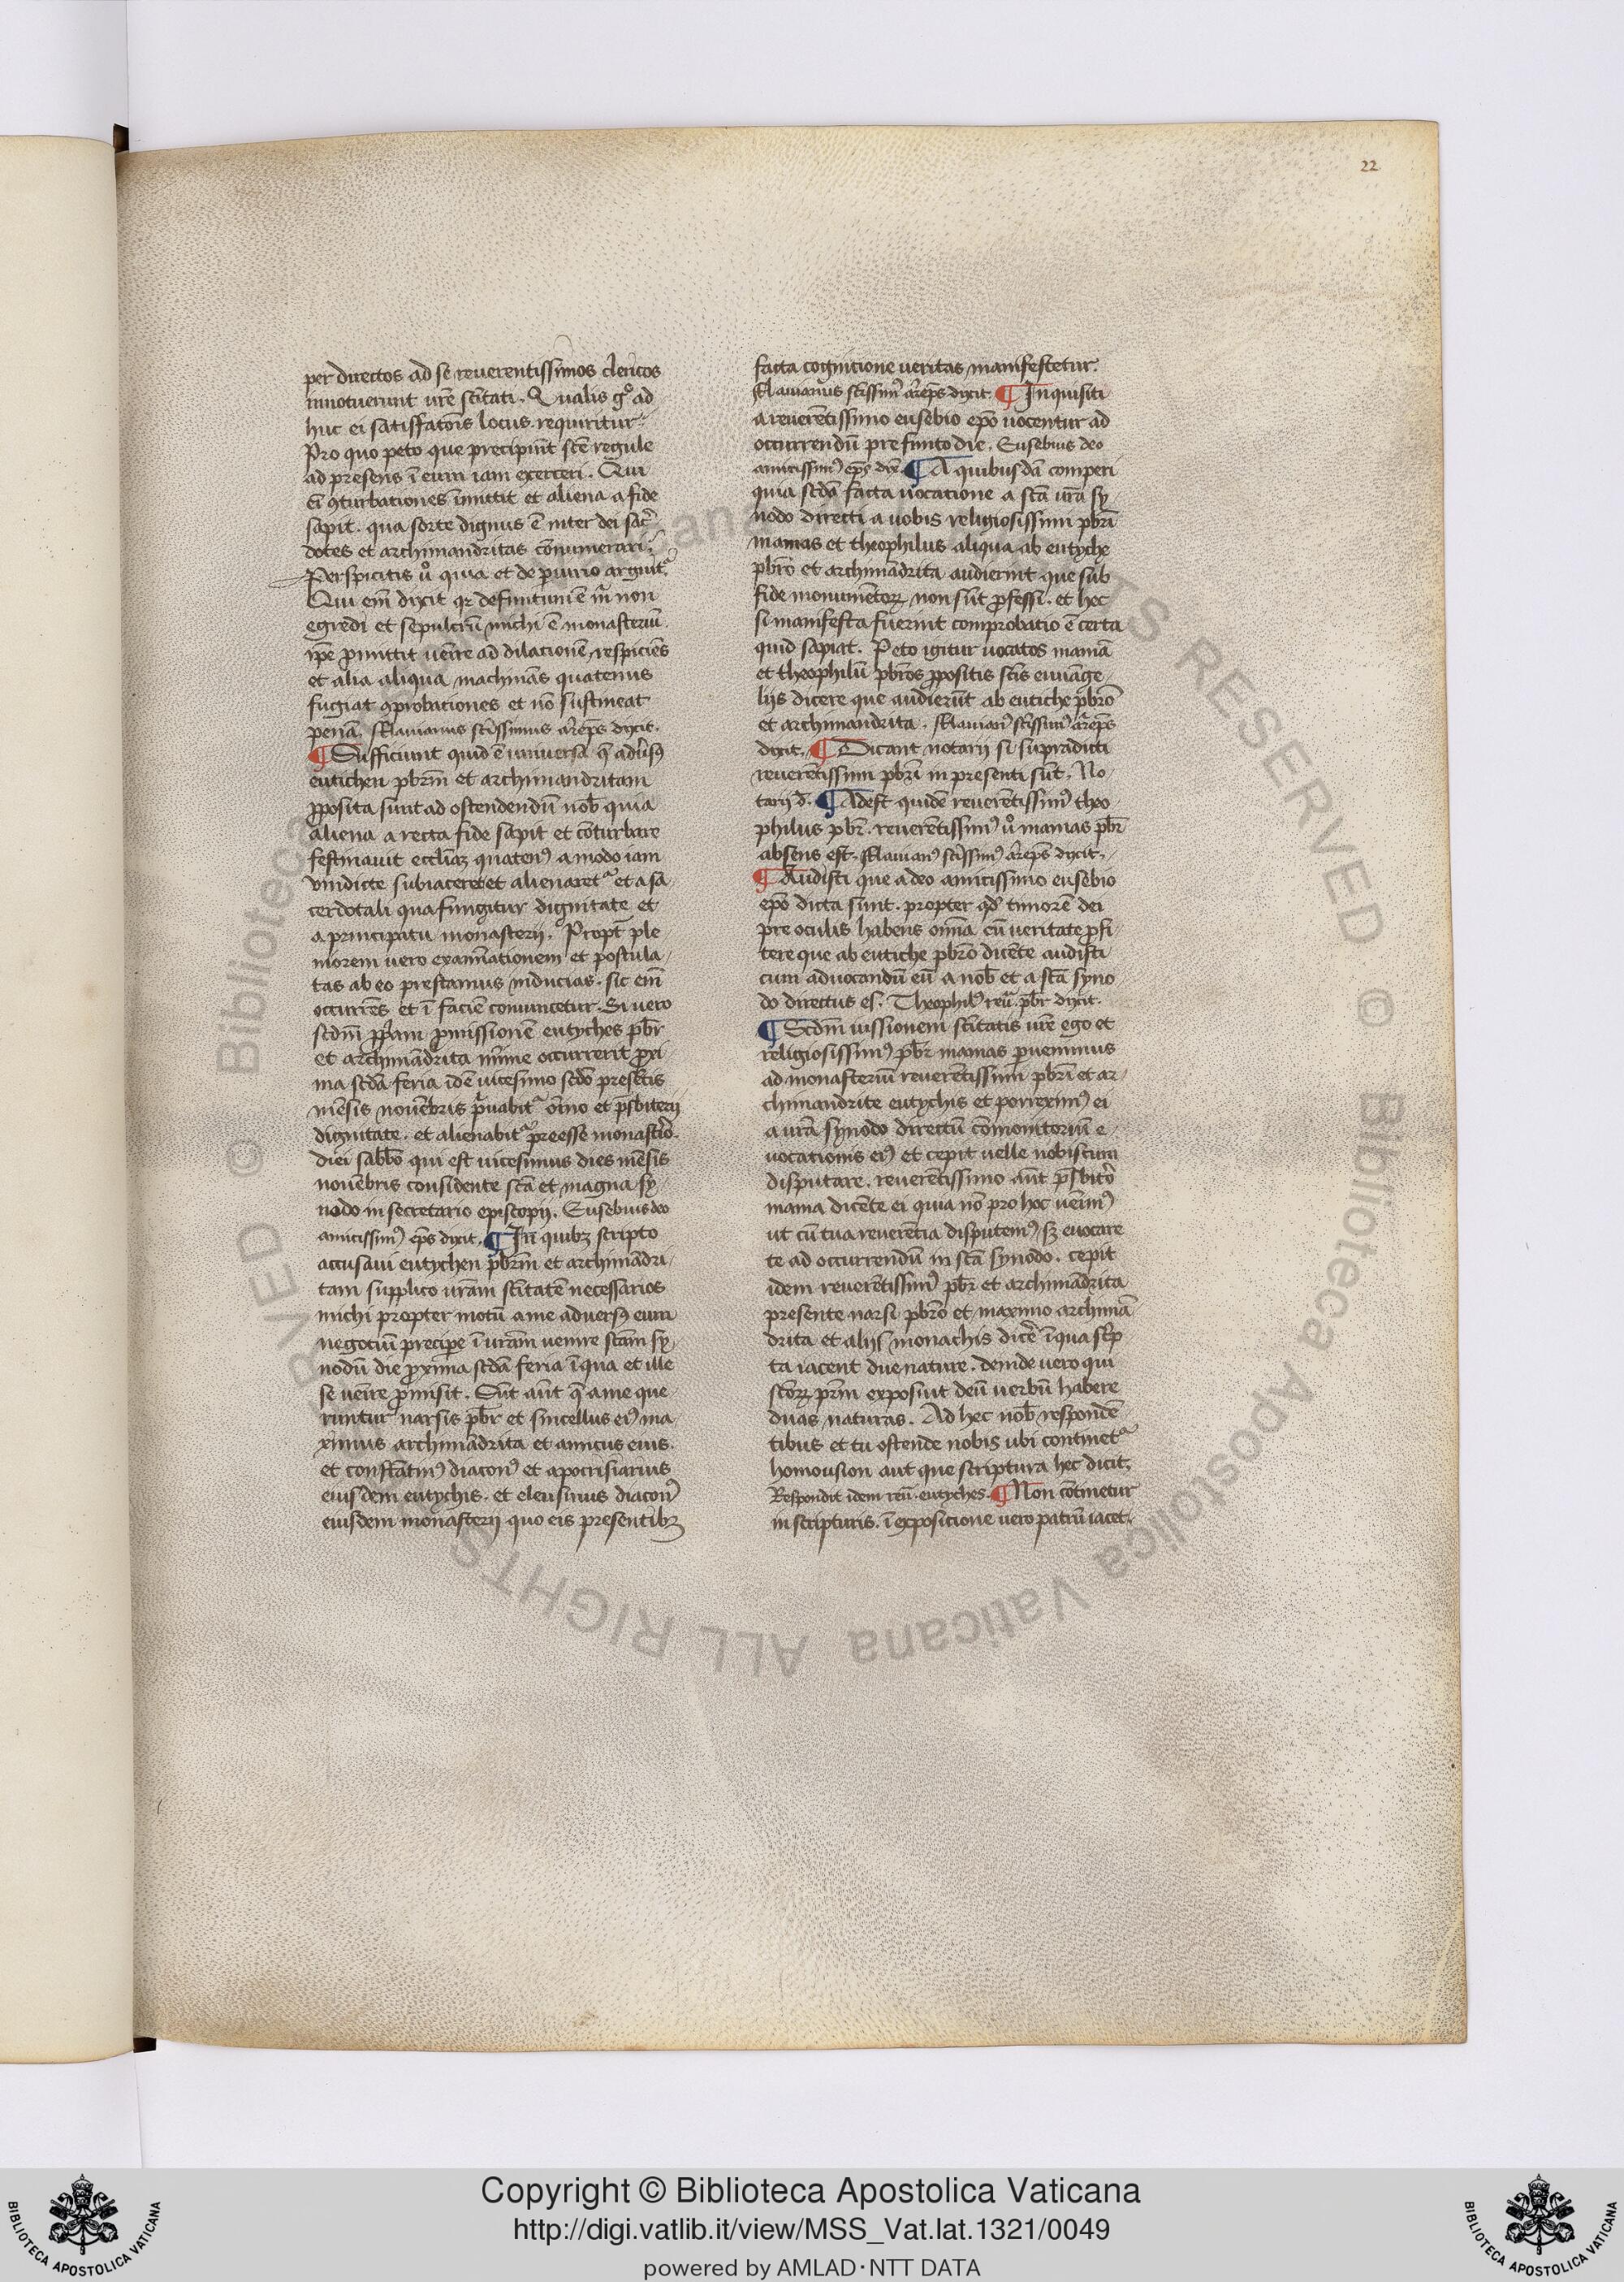 22
per directos ad se reuerentissimos clericos
innotuerunt vr̄e sc̄itati. Qualis gͦ ad
huc ei satisfac̄ōis locus requiritur
Pro quo peto que precipiūt sc̄e regule
ad presens ī eum iam exerceri. Qui
Ei ꝯturbationes īmittit et aliena a fide
sapit. qua sorte dignus ē inter dei sac̄
dotes et archimandritas cōnumerari
Perspicitis uͦ quia et de periurio arguit᷑
Qui em̄ dixit qr defunctum ē m̄ non
egredi et sepulcrū michi ē monasteriū.
ip̄e ꝓmittit uēire ad dilationē, respiciēs
et alia aliqua machinās quatenus
fugiat ꝯprobationes et nō sustineat
penā. Flauianus sc̄issimus ar̄ep̄s dixit.
¶ Sufficiunt quidē uniuersa q̄ adūsꝰ
eutichen pb̄rm̄ et archimandritam
ꝓposita sunt ad ostendendū nob̄ quia
aliena a recta fide sapit et cōturbare
festinauit eccl̄iaꝫ quatenꝰ a modo iam
vindicte subiaceret et alienaret᷑ et a sa
cerdotali qua fungitur dignitate et
a principatu monasterij. Propt̄ ple
morem uero exam̄nationem et postula
tas ab eo prestamus inducias. sic em̄
occurrēs et ī faciē conuincetur. Si uero
scd̄m̄ ꝓp̄am ꝓmissionē eutyches pb̄r
et archimādrita mīime occurrerit ꝓxi
ma scd̄a feria idē uicesimo scd̄o presētis
mēsis nouēbris p̄uabit᷑ oīno et p̄sbiterij
dignitate. et alienabit᷑ preesse monast̄io.
diei sabb̄o qui est uicesimus dies mēsis
nouēbris considente sc̄a et magna sy
nodo in secretario episcopij. Eusebius deo
amicissimꝰ ep̄s dixit. ¶ In quibꝫ scripto
accusaui eutychen pb̄rm̄ et archimādri
tam supplico vr̄am sc̄itatē necessarios
michi propter motū a me aduersꝰ eum
negotiū precipe ī vr̄am uenire sc̄am sy
nodū die ꝓxima scd̄a feria ī qua et ille
se uēire ꝓmisit. Sūt aūt q̄ a me que
runtur narsis pb̄r et sincellus eiꝰ ma
ximus archimādrita et amicus eius.
et constātinꝰ diaconꝰ et apocrisiarius
eiusdem eutychis. et eleusinus diaconꝰ
eiusdem monasterij quo eis presentibꝫ
facta cognitione ueritas manifestetur.
Flauianus sc̄issimꝰ ar̄ep̄s dixit. ¶ Inquisiti
a reuerētissimo eusebio ep̄o uocentur ad
occurrendū prefinito die. Eusebius deo
amicissimꝰ ep̄s dix̄. ¶ A quibusdā comperi
quia scd̄a facta uocatione a sc̄a vr̄a sy
nodo directi a uobis religiosissimi pb̄ri
mamas et theophilus aliqua ab eutyche
pb̄ro et archimādrita audierint que sub
fide monumētorꝫ non sūt ꝓfessi. et hec
si manifesta fuerint comprobatio ē certa
quid sapiat. Peto igitur uocatos mamā
et theophilū pb̄ros ꝓpositis sc̄is euuāge
lijs dicere que audierūt ab eutiche pb̄ro
et archimandrita. Flauianꝰ sc̄issimꝰ ar̄ep̄s
dixit. ¶ Dicant notarij si supradicti
reuerētissimi pb̄ri in presenti sūt. No
tarij d̄. ¶ Adest quidē reuerētissimꝰ theo
philus pb̄r. reuerētissimꝰ uͦ mamas pb̄r
absens est. Flauianꝰ sc̄issimꝰ ar̄ep̄s dixit.
¶ Audisti que a deo amicissimo eusebio
ep̄o dicta sunt. propter qd̄ timorē dei
pre oculis habens om̄ia cū ueritate ꝓfi
tere que ab eutiche pb̄ro dicēte audisti
cum aduocandū eū a nob̄ et a sc̄a syno
do directus es. Theophilꝰ reū. pb̄r dixit.
¶ Scd̄m iussionem sc̄itatis vr̄e ego et
religiosissimꝰ pb̄r mamas ꝑuenimus
ad monasteriū reuerētissimi pb̄ri et ar
chimandrite eutychis et porreximꝰ ei
a vr̄a synodo directū cōmonitoriū e
uocationis eiꝰ et cepit uelle nobiscum
disputare. reuerētissimo aūt p̄sbit̄o
mama dicēte ei quia nō pro hoc uēimꝰ
ut cū tua reuerētia disputemꝰ sꝫ euocare
te ad occurrendū in sc̄a synodo. cepit
idem reuerētissimꝰ pb̄r et archimādrita
presente narsi pb̄ro et maximo archimā
drita et alijs monachis dic̄e ī qua sc̄ip
ta iacent due nature. deinde uero qui
sc̄orꝫ pr̄m exposuit deū uerbū habere
duas naturas. Ad hec nob̄ respondē
tibus et tu ostende nobis ubi continet᷑
homousion aut que scriptura hec dicit.
Respondit idem reū. eutyches. ¶ Non cōtinetur
in scripturis. ī expositione uero patrū iacet.
Copyright © Biblioteca Apostolica Vaticana
http://digi.vatlib.it/view/MSS_Vat.lat.1321/0049
powered by AMLAD·NTT DATA